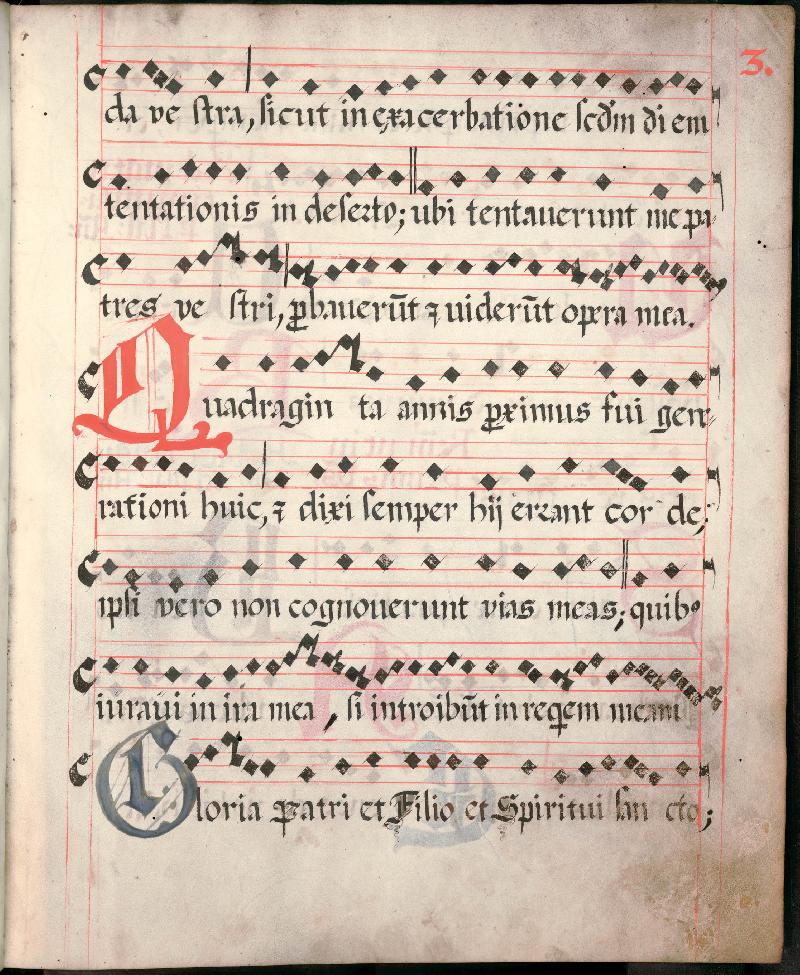 3.
da ve stra, sicut in exacerbatione scdm diem
tentationis in deserto; ubi tentauerunt me pa-
tres ve stri, ꝓbauerūt ⁊ uiderūt opera mea.
Quadragin ta annis ꝓximus fui gene-
rationi huic, ⁊ dixi semper hij errant cor de;
ipsi vero non cognouerunt vias meas; quibꝰ
iuraui in ira mea, si introibūt in reqem meam
Gloria Patri et Filio et Spiritui san cto;